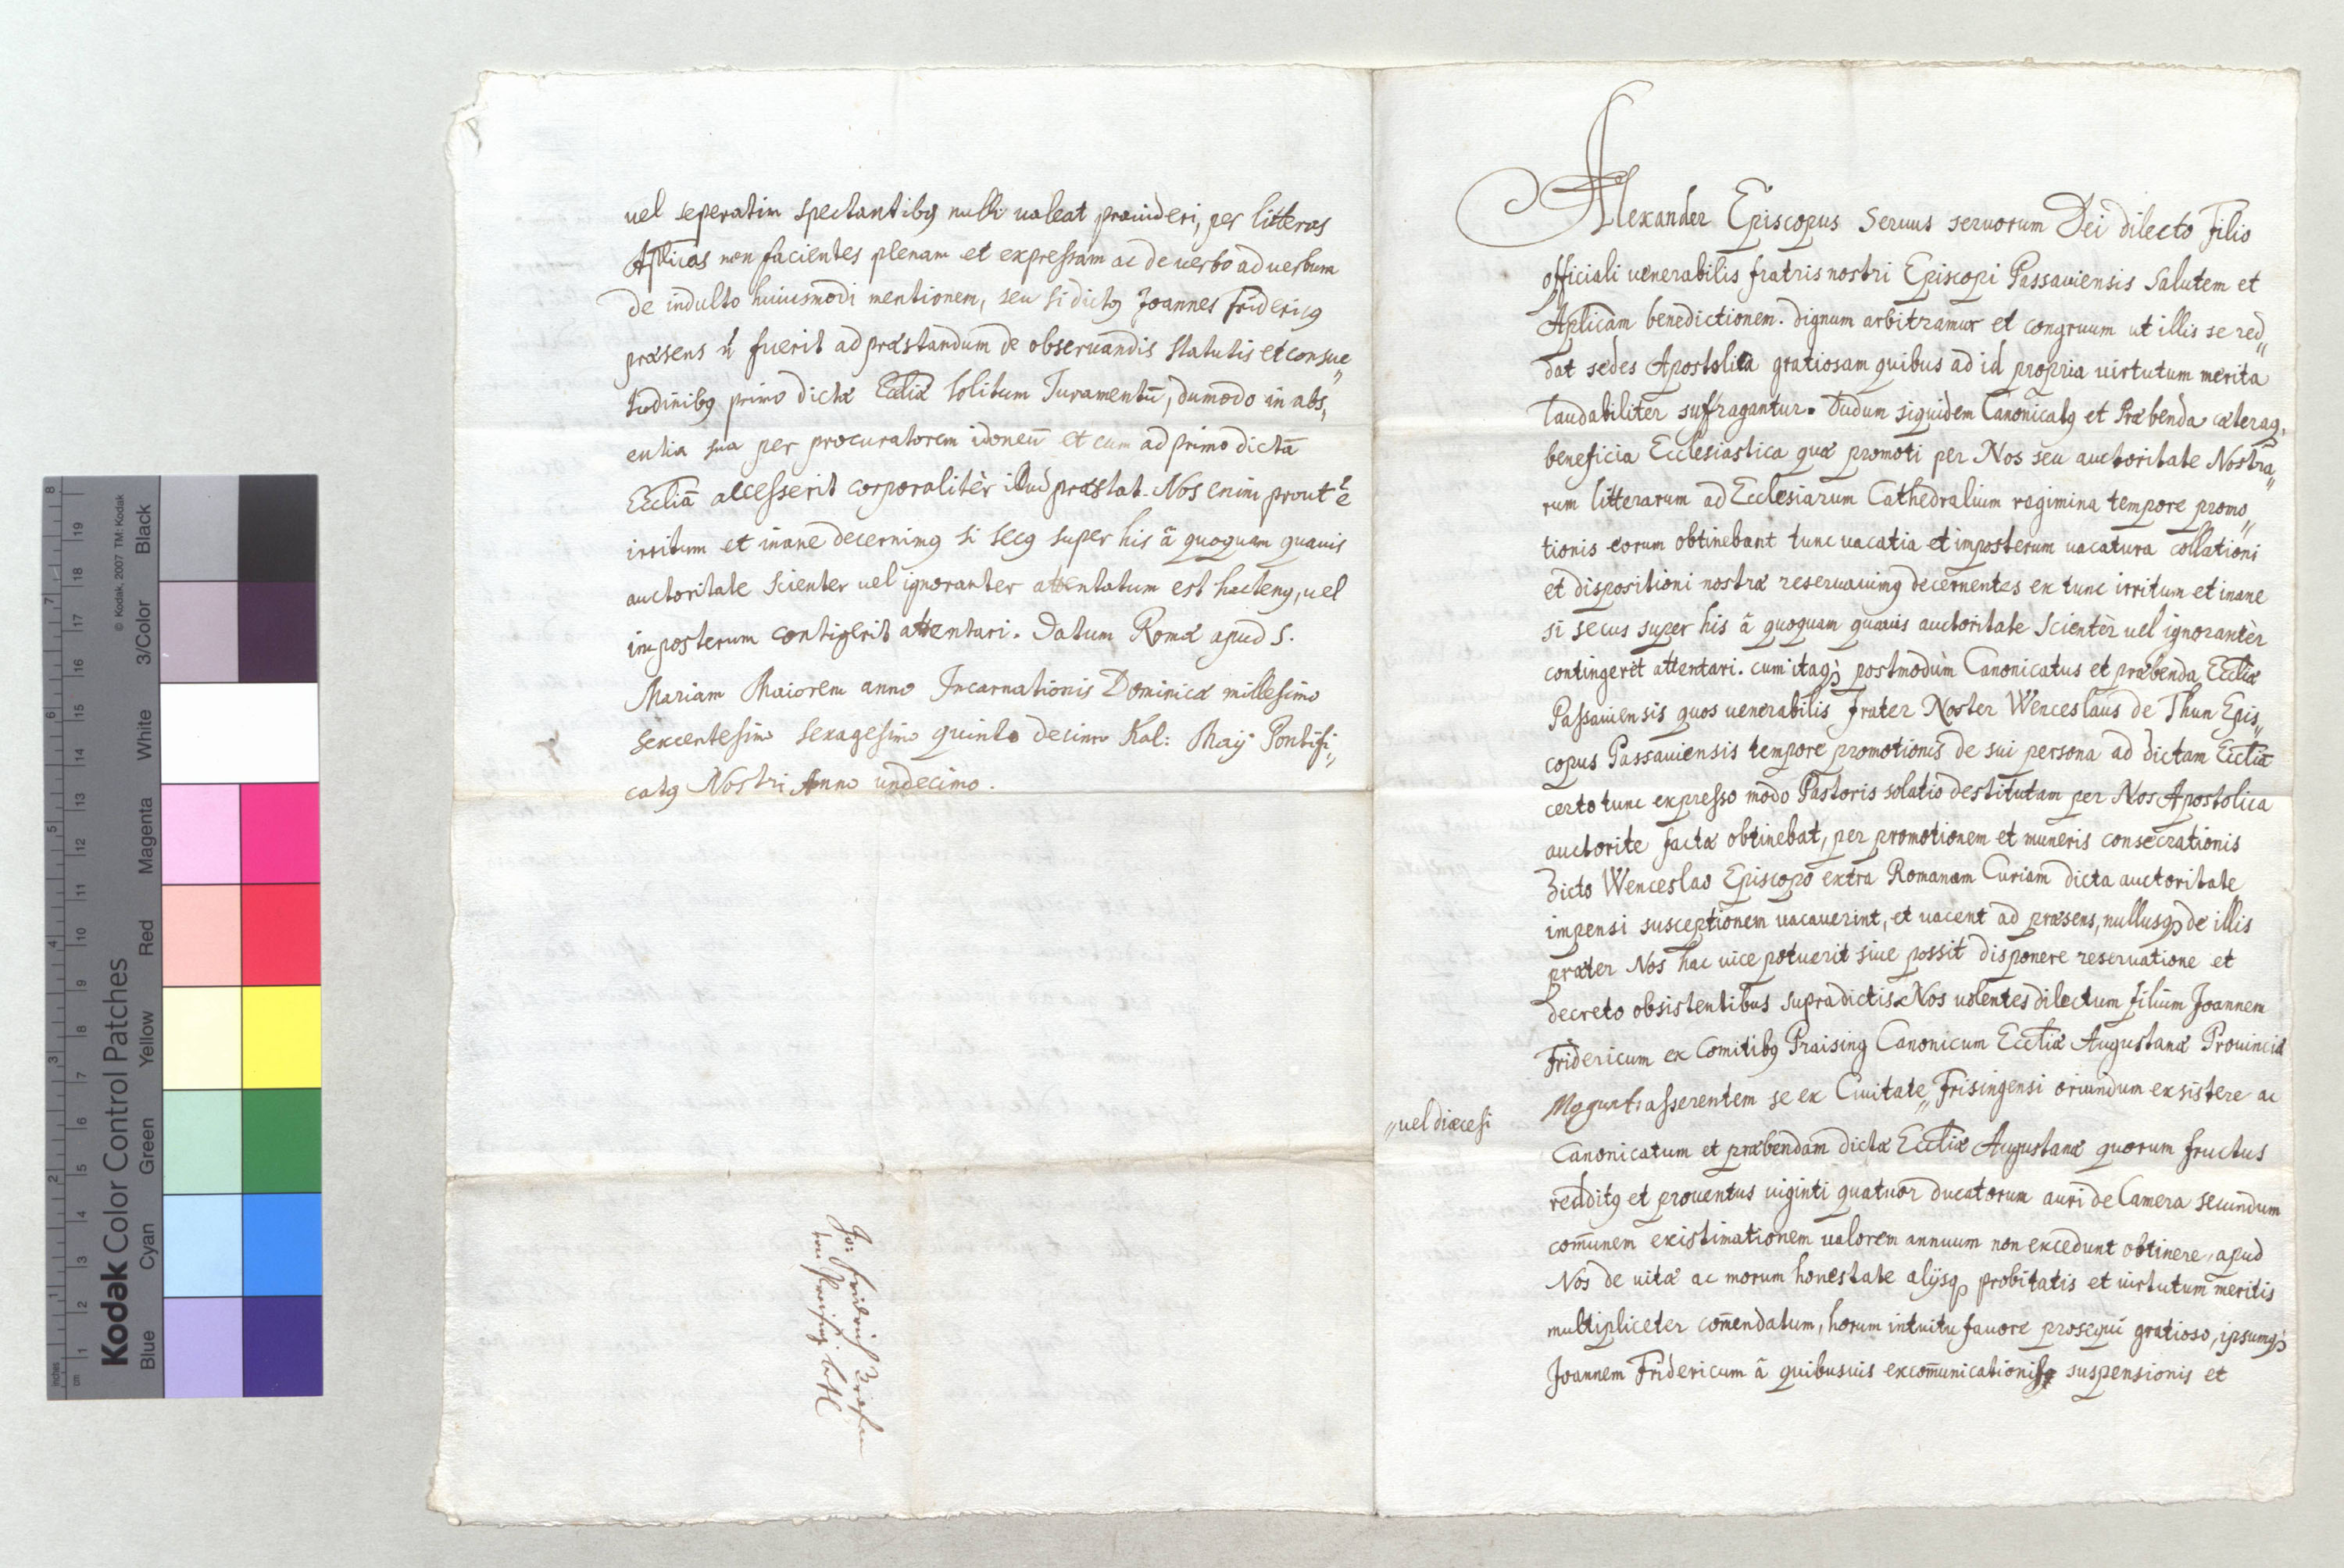 uel seperatim spectantibꝯ nulli ualeat prouideri, per litteras
Aplicas non facientes plenam et expressam ac de uerbo ad uerbum
de indulto huiusmodi mentionem, seu si dictꝯ Joannes Fridericꝯ
præsens ñ fuerit ad præstandum de obseruandis statutis et consue„
tudinibꝯ primo dictæ Eccliæ solitum Juramentũ, dumodo in abs„
entia sua per procuratorem idoneũ et cum ad primo dictã
Eccliã accesserit corporalitèr illud præstat. Nos enim prout ẽ
irritum et inane decernimꝯ si secꝯ super his ã quoquam quauis
auctoritate scienter uel ignoranter attentatum est hactenꝯ, uel
imposterum contigerit attentari. Datum Romæ apud S.
Mariam Maiorem anno Incarnationis Dominicæ millesimo
sexcentesimo sexagesimo quinto decimo Kal: Maij Pontifi„
catꝯ Nostri Anno undecimo.
Jo: Fridrich
von Preising
Alexander Episcopus Seruus seruorum Dei dilecto Filio
officiali uenerabilis fratris nostri Episcopi Passauiensis salutem et
Aplicam benedictionem. Dignum arbitramur et congruum ut illis se red„
dat sedes Apostolica gratiosam quibus ad id propria uirtutum merita
laudabiliter suffragantur. Dudum siquidem Canonicatꝯ et Præbenda cæteraq,
beneficia Ecclesiastica quæ promoti per Nos seu auctoritate Nostra„
rum litterarum ad Ecclesiarum Cathedralium regimina tempore promo„
tionis eorum obtinebant tunc uacatia et imposterum uacatura collationi
et dispositioni nostræ reseruauimꝯ decernentes ex tunc irritum et inane
si secus super his ã quoquam quauis auctoritate scientèr uel ignorantèr
contingerit attentari. cum itaq; postmodùm Canonicatus et præbenda Eccliæ
Passauiensis quos uenerabilis Frater Noster Wenceslaus de Thun Epis„
copus Passauiensis tempore promotionis de sui persona ad dictam Eccliã
certo tunc expresso modo Pastoris solatio destitutam per Nos Apostolica
auctorite factæ obtinebat, per promotionem et muneris consecrationis
dicto Wenceslao Episcopo extra Romanam Curiam dicta auctoritate
impensi susceptionem uacauerint, et uacent ad præsens, nullusq; de illis
præter Nos hac uice potuerit siue possit disponere reseruatione et
decreto obsistentibus supradictis. Nos uolentes dilectum filium Joannem
Fridericum ex Comitibꝯ Praising Canonicum Eccliæ Augustanæ Prouinciæ
Mogunt: asserentem se ex Ciuitate„ Frisingensi oriundum exsistere ac
„uel diæcesi
Canonicatum et præbendam dictæ Eccliæ Augustanæ quorum fructus
redditꝯ et prouentus uiginti quatuor ducatorum auri de Camera secundum
com̃unem existimationem ualorem annuum non excedunt obtinere, apud
Nos de uitæ ac morum honestate alijsq; probitatis et uirtutum meritis
multipliceter com̃endatum, horum intuitu fauore prosequi gratioso, ipsumq;
Joannem Fridericum ã quibusuis excom̃unicationis suspensionis et
Kodak Color Control Patches
© Kodak, 2007 TM: Kodak
Blue Cyan Green Yellow Red Magenta White 3/Color Black
inches 1 2 3 4 5 6 7 8
cm 1 2 3 4 5 6 7 8 9 10 11 12 13 14 15 16 17 18 19